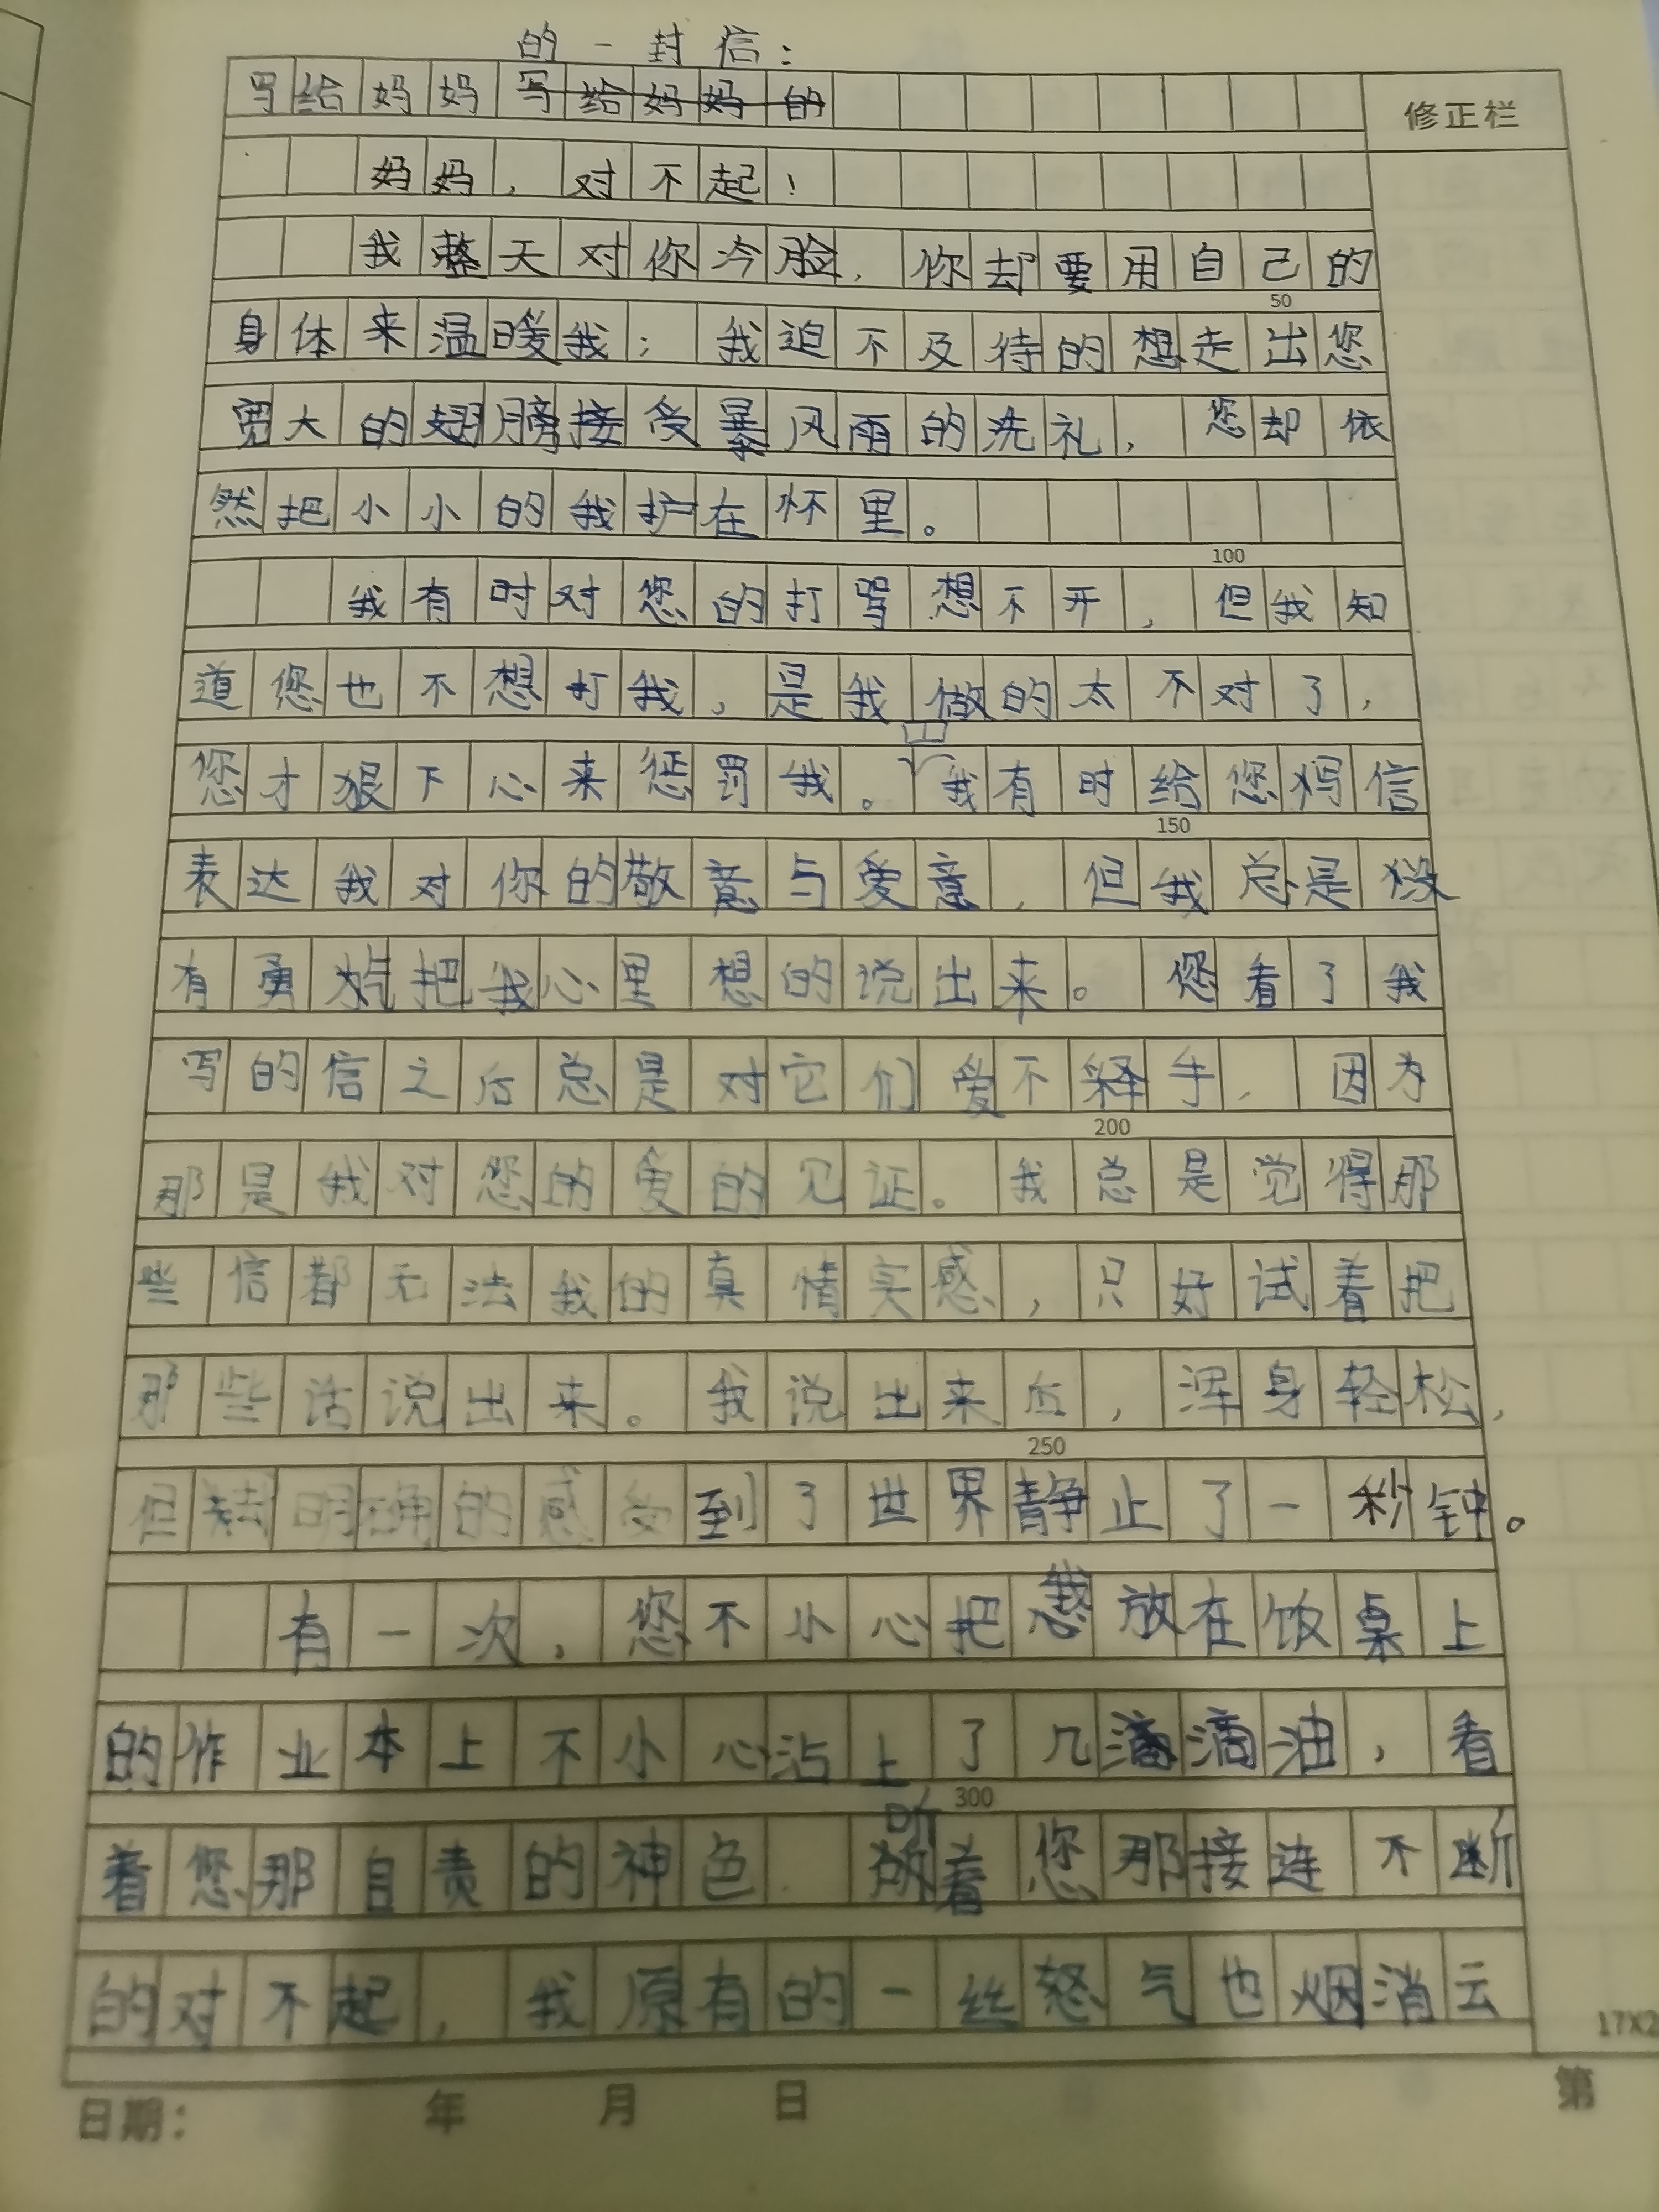 的一封信：
写给妈妈写给妈妈的
修正栏
妈妈，对不起！
我整天对你冷脸，你却要用自己的
50
身体来温暖我；我迫不及待的想走出您
宽大的翅膀接受暴风雨的洗礼，您却依
然把小小的我护在怀里。
100
我有时对您的打骂想不开，但我知
道您也不想打我，是我做的太不对了，
您才狠下心来惩罚我。我有时给您写信
150
表达我对你的敬意与爱意，但我总是没
有勇气把我心里想的说出来。您看了我
写的信之后总是对它们爱不释手，因为
200
那是我对您的爱的见证。我总是觉得那
些信都无法我的真情实感，只好试着把
那些话说出来。我说出来后，浑身轻松，
250
但却明确的感受到了世界静止了一秒钟。
有一次，您不小心把我放在饭桌上
的作业本上不小心沾上了几滴滴油，看
300
着您那自责的神色 听着您那接连不断
的对不起，我原有的一丝怒气也烟消云
17X2
日期： 年 月 日 第